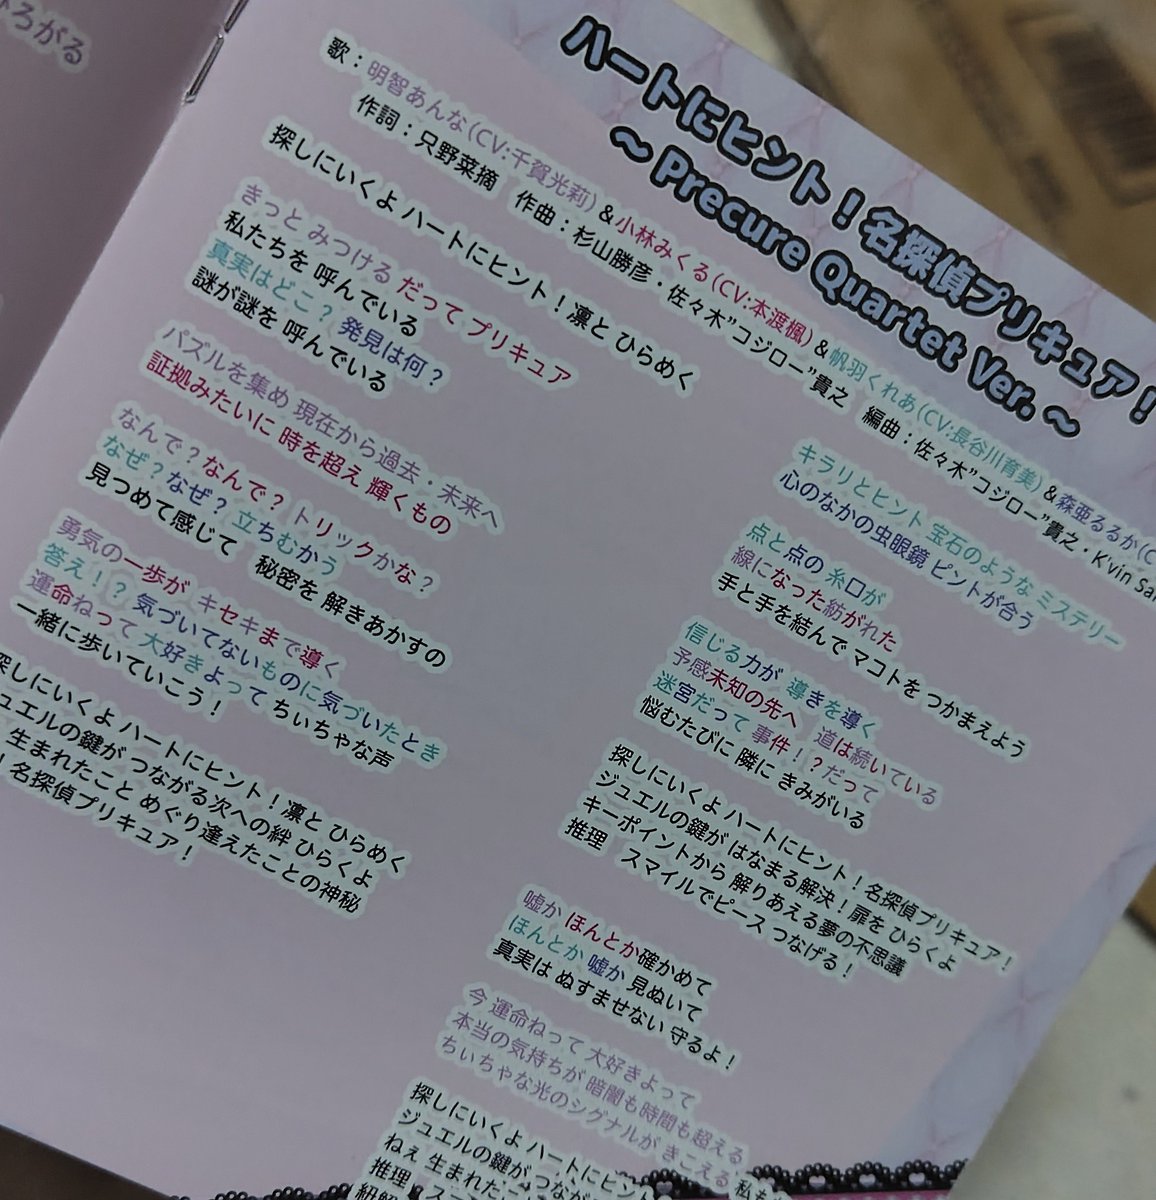 ろがる
ハートにヒント！名探偵プリキュア！
～ Precure Quartet Ver. ～
歌：明智あんな(CV:千賀光莉)＆小林みくる(CV:本渡楓)＆帆羽くれあ(CV:長谷川育美)＆森亜るるか(C
作詞：只野菜摘　作曲：杉山勝彦・佐々木”コジロー”貴之　編曲：佐々木”コジロー”貴之・K'vin Sa
探しにいくよ ハートにヒント！凛と ひらめく
きっと みつける だって プリキュア
私たちを 呼んでいる
真実はどこ？ 発見は何？
謎が謎を 呼んでいる
パズルを集め 現在から過去・未来へ
証拠みたいに 時を超え 輝くもの
なんで？なんで？ トリックかな？
なぜ？なぜ？ 立ちむかう
見つめて感じて　秘密を 解きあかすの
勇気の一歩が キセキまで導く
答え！？ 気づいてないものに気づいたとき
運命ねって 大好きよって ちいちゃな声
一緒に歩いていこう！
探しにいくよ ハートにヒント！凛と ひらめく
ュエルの鍵が つながる次への絆 ひらくよ
生まれたこと めぐり逢えたことの神秘
！名探偵プリキュア！
キラリとヒント 宝石のような ミステリー
心のなかの虫眼鏡 ピントが合う
点と点の 糸口が
線になった紡がれた
手と手を結んで マコトを つかまえよう
信じる力が 導きを導く
予感未知の先へ　道は続いている
迷宮だって 事件！？だって
悩むたびに 隣に きみがいる
探しにいくよ ハートにヒント！名探偵プリキュア！
ジュエルの鍵が はなまる解決！扉を ひらくよ
キーポイントから 解りあえる夢の不思議
推理　スマイルでピース つなげる！
嘘か ほんとか確かめて
ほんとか 嘘か 見ぬいて
真実は ぬすませない 守るよ！
今 運命ねって 大好きよって
本当の気持ちが 暗闇も時間も超える
ちいちゃな光のシグナルが きこえる 私も
探しにいくよ ハートにヒント
ジュエルの鍵が つなが
ねえ 生まれたこ
推理！スマ